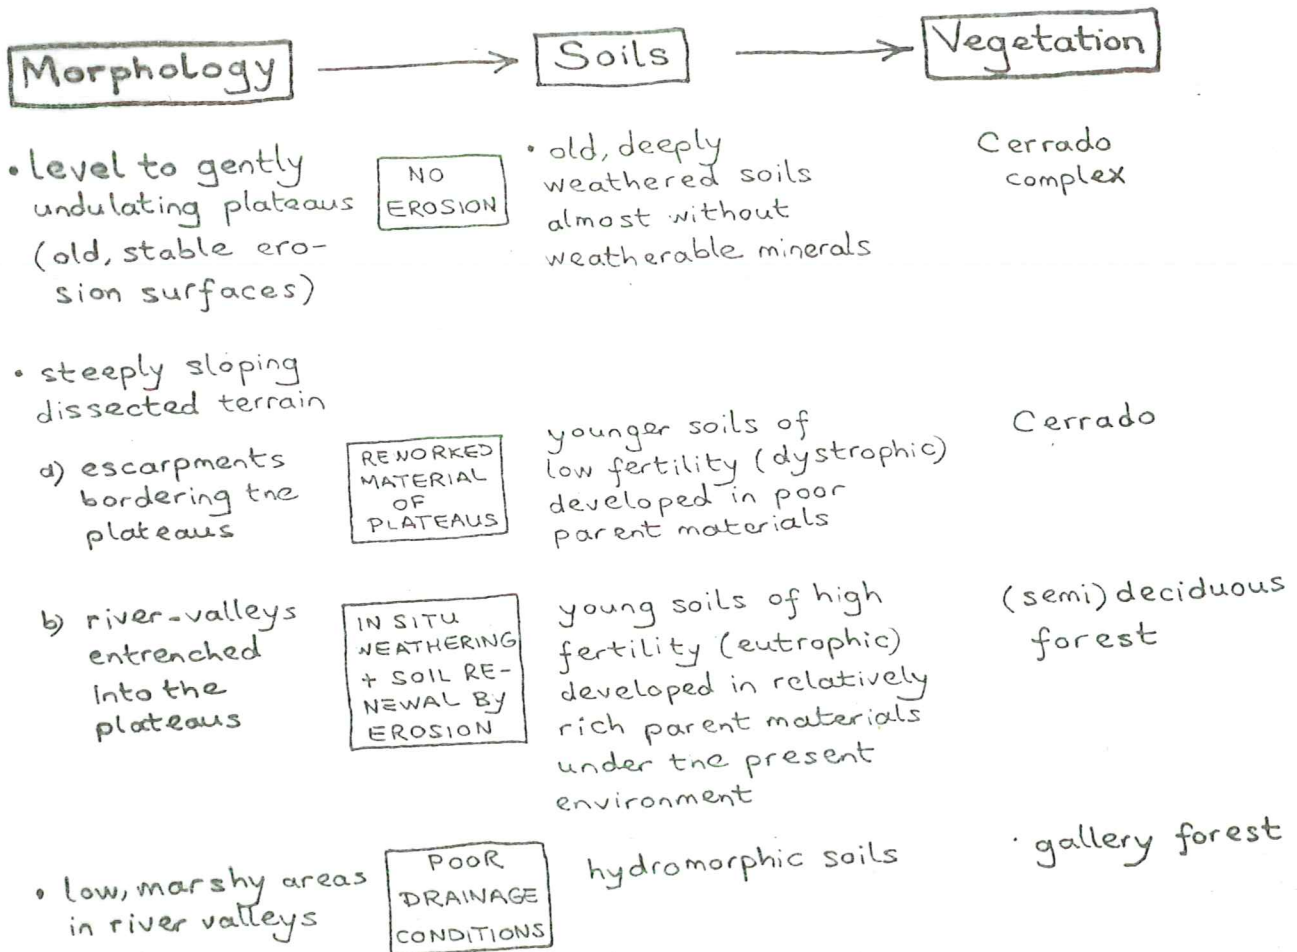 Morphology
Soils
Vegetation
• level to gently
undulating plateaus
(old, stable ero-
sion surfaces)
NO
EROSION
• old, deeply
weathered soils
almost without
weatherable minerals
Cerrado
complex
• steeply sloping
dissected terrain
a) escarpments
bordering the
plateaus
REWORKED
MATERIAL
OF
PLATEAUS
younger soils of
low fertility (dystrophic)
developed in poor
parent materials
Cerrado
b) river-valleys
entrenched
into the
plateaus
IN SITU
WEATHERING
+ SOIL RE-
NEWAL BY
EROSION
young soils of high
fertility (eutrophic)
developed in relatively
rich parent materials
under the present
environment
(semi) deciduous
forest
• low, marshy areas
in river valleys
POOR
DRAINAGE
CONDITIONS
hydromorphic soils
· gallery forest